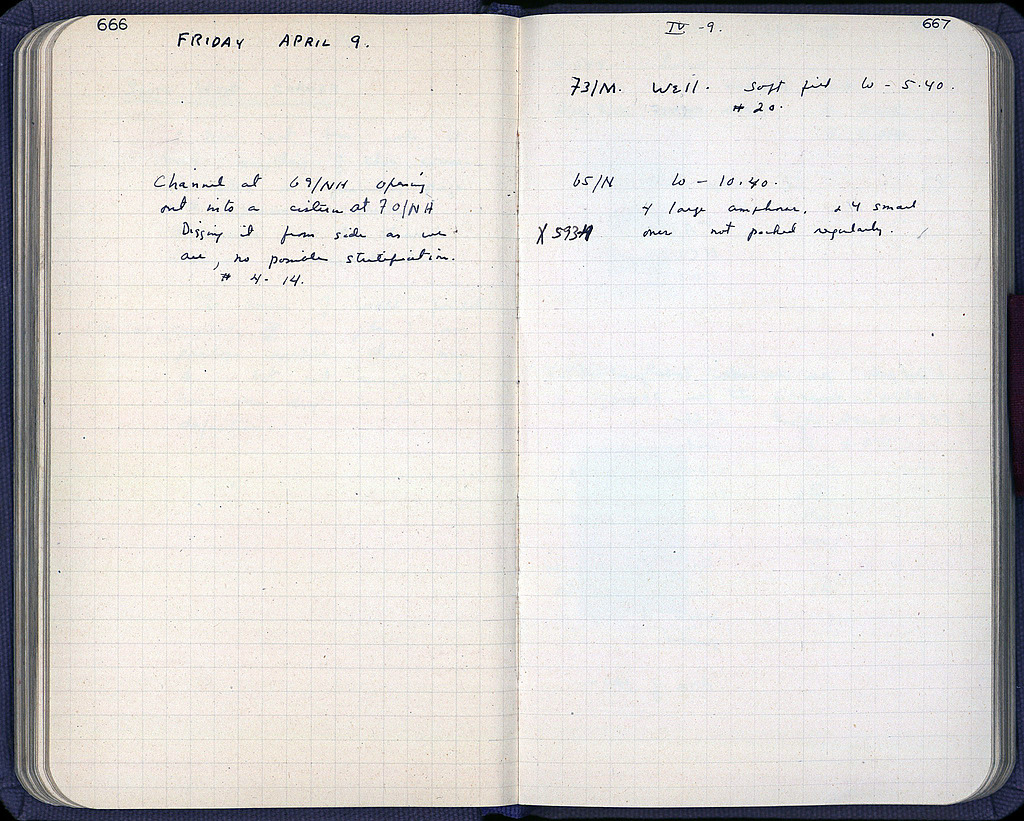 666
FRIDAY APRIL 9.
Channel at 69/NH opening
out into a cistern at 70/NH
Digging it from side as we
are, no possible stratification.
# 4-14.
667
IV -9.
73/M. Well. Soft fill W - 5.40.
# 20.
65/N W - 10.40.
4 large amphorae, & 4 small
ones not packed regularly.